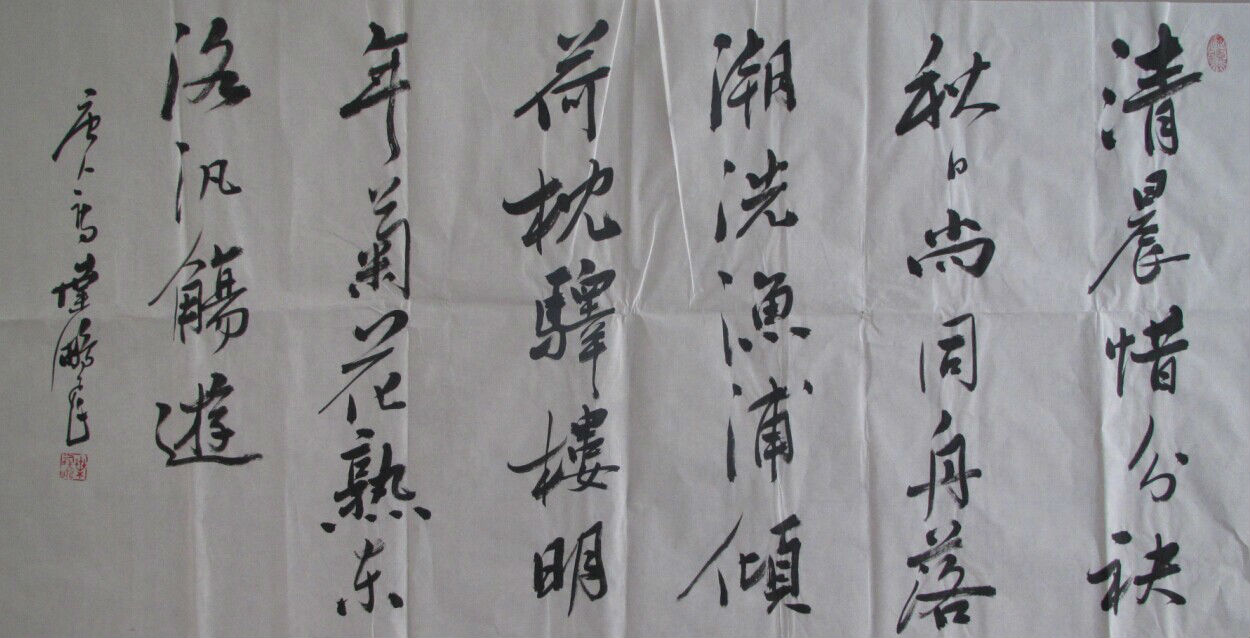 清晨惜分袂
秋日尚同舟落
潮洗渔浦倾
荷枕驿楼明
年菊花熟东
洛汎觞游
唐人诗